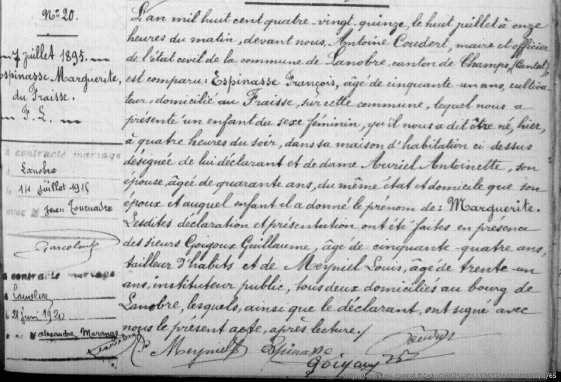 Nº 20.
7 juillet 1895.
Espinasse Marguerite,
du Fraisse.
F. L.
a contracté mariage
à Lanobre
le 14 juillet 1915
avec Jean Tournadre
a contracté mariage
à Lanobre
le 21 juin 1920
Alexandre
L'an mil huit cent quatre-vingt-quinze, le huit juillet à onze
heures du matin, devant nous, Antoine Coudert, maire et officier
de l'état civil de la commune de Lanobre, canton de Champs, (Cantal)
est comparu: Espinasse François, âgé de cinquante-un ans, cultiva-
teur, domicilié au Fraisse, sur cette commune, lequel nous a
présenté un enfant du sexe féminin, qu'il nous a dit être né, hier,
à quatre heures du soir, dans sa maison d'habitation ci-dessus
désignée de lui déclarant et de dame Auriel Antoinette, son
épouse, âgée de quarante ans, du même état et domicile que son
époux et auquel enfant il a donné le prénom de: Marguerite.
Lesdites déclaration et présentation ont été faites en présence
des sieurs Goigoux Guillaume, âgé de cinquante-quatre ans,
tailleur d'habits et de Meyniel Louis, âgé de trente-un
ans, instituteur public, tous deux domiciliés au bourg de
Lanobre, lesquels, ainsi que le déclarant, ont signé avec
nous le présent acte, après lecture./
Meyniel Espinasse
Goigoux